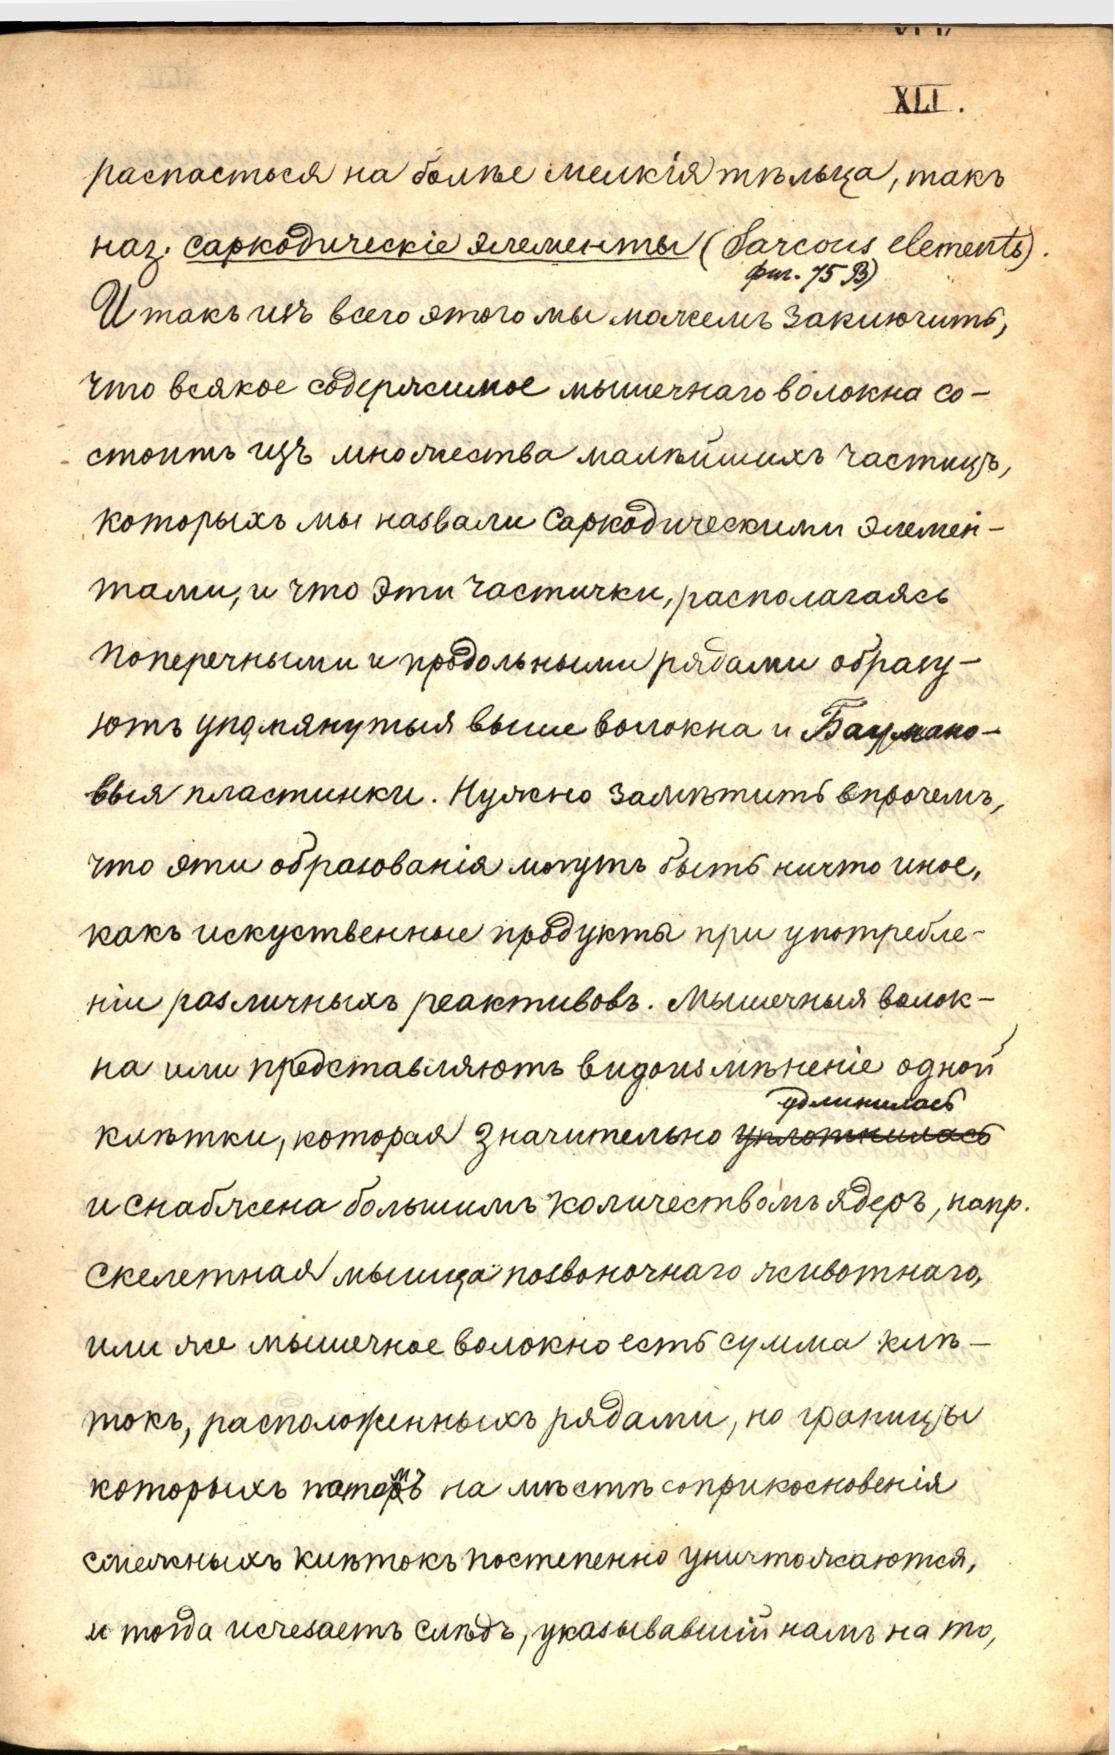 XLI.
распасться на болѣе мелкія тѣльца, такъ
наз. саркодическіе элементы (Sarcous elements).
фиг. 75 В)
И такъ изъ всего этого мы можемъ заключить,
что всякое содержимое мышечнаго волокна со-
стоитъ изъ множества малѣйшихъ частицъ,
которыхъ мы назвали саркодическими элемен-
тами, и что эти частички, располагаясь
поперечными и продольными рядами образу-
ютъ упомянутыя выше волокна и Баумано-
выя пластинки. Нужно замѣтить впрочемъ,
что эти образованія могутъ быть ничто иное,
какъ искуственные продукты при употребле-
ніи различныхъ реактивовъ. Мышечныя волок-
на или представляютъ видоизмѣненіе одной
удлинилась
клѣтки, которая значительно уплотнилась
и снабжена большимъ количествомъ ядеръ, напр.
скелетная мышца позвоночнаго животнаго,
или же мышечное волокно есть сумма клѣ-
токъ, расположенныхъ рядами, но границы
которыхъ потомъ на мѣстѣ соприкосновенія
смежныхъ клѣтокъ постепенно уничтожаются,
и тогда исчезаетъ слѣдъ, указывавшій намъ на то,